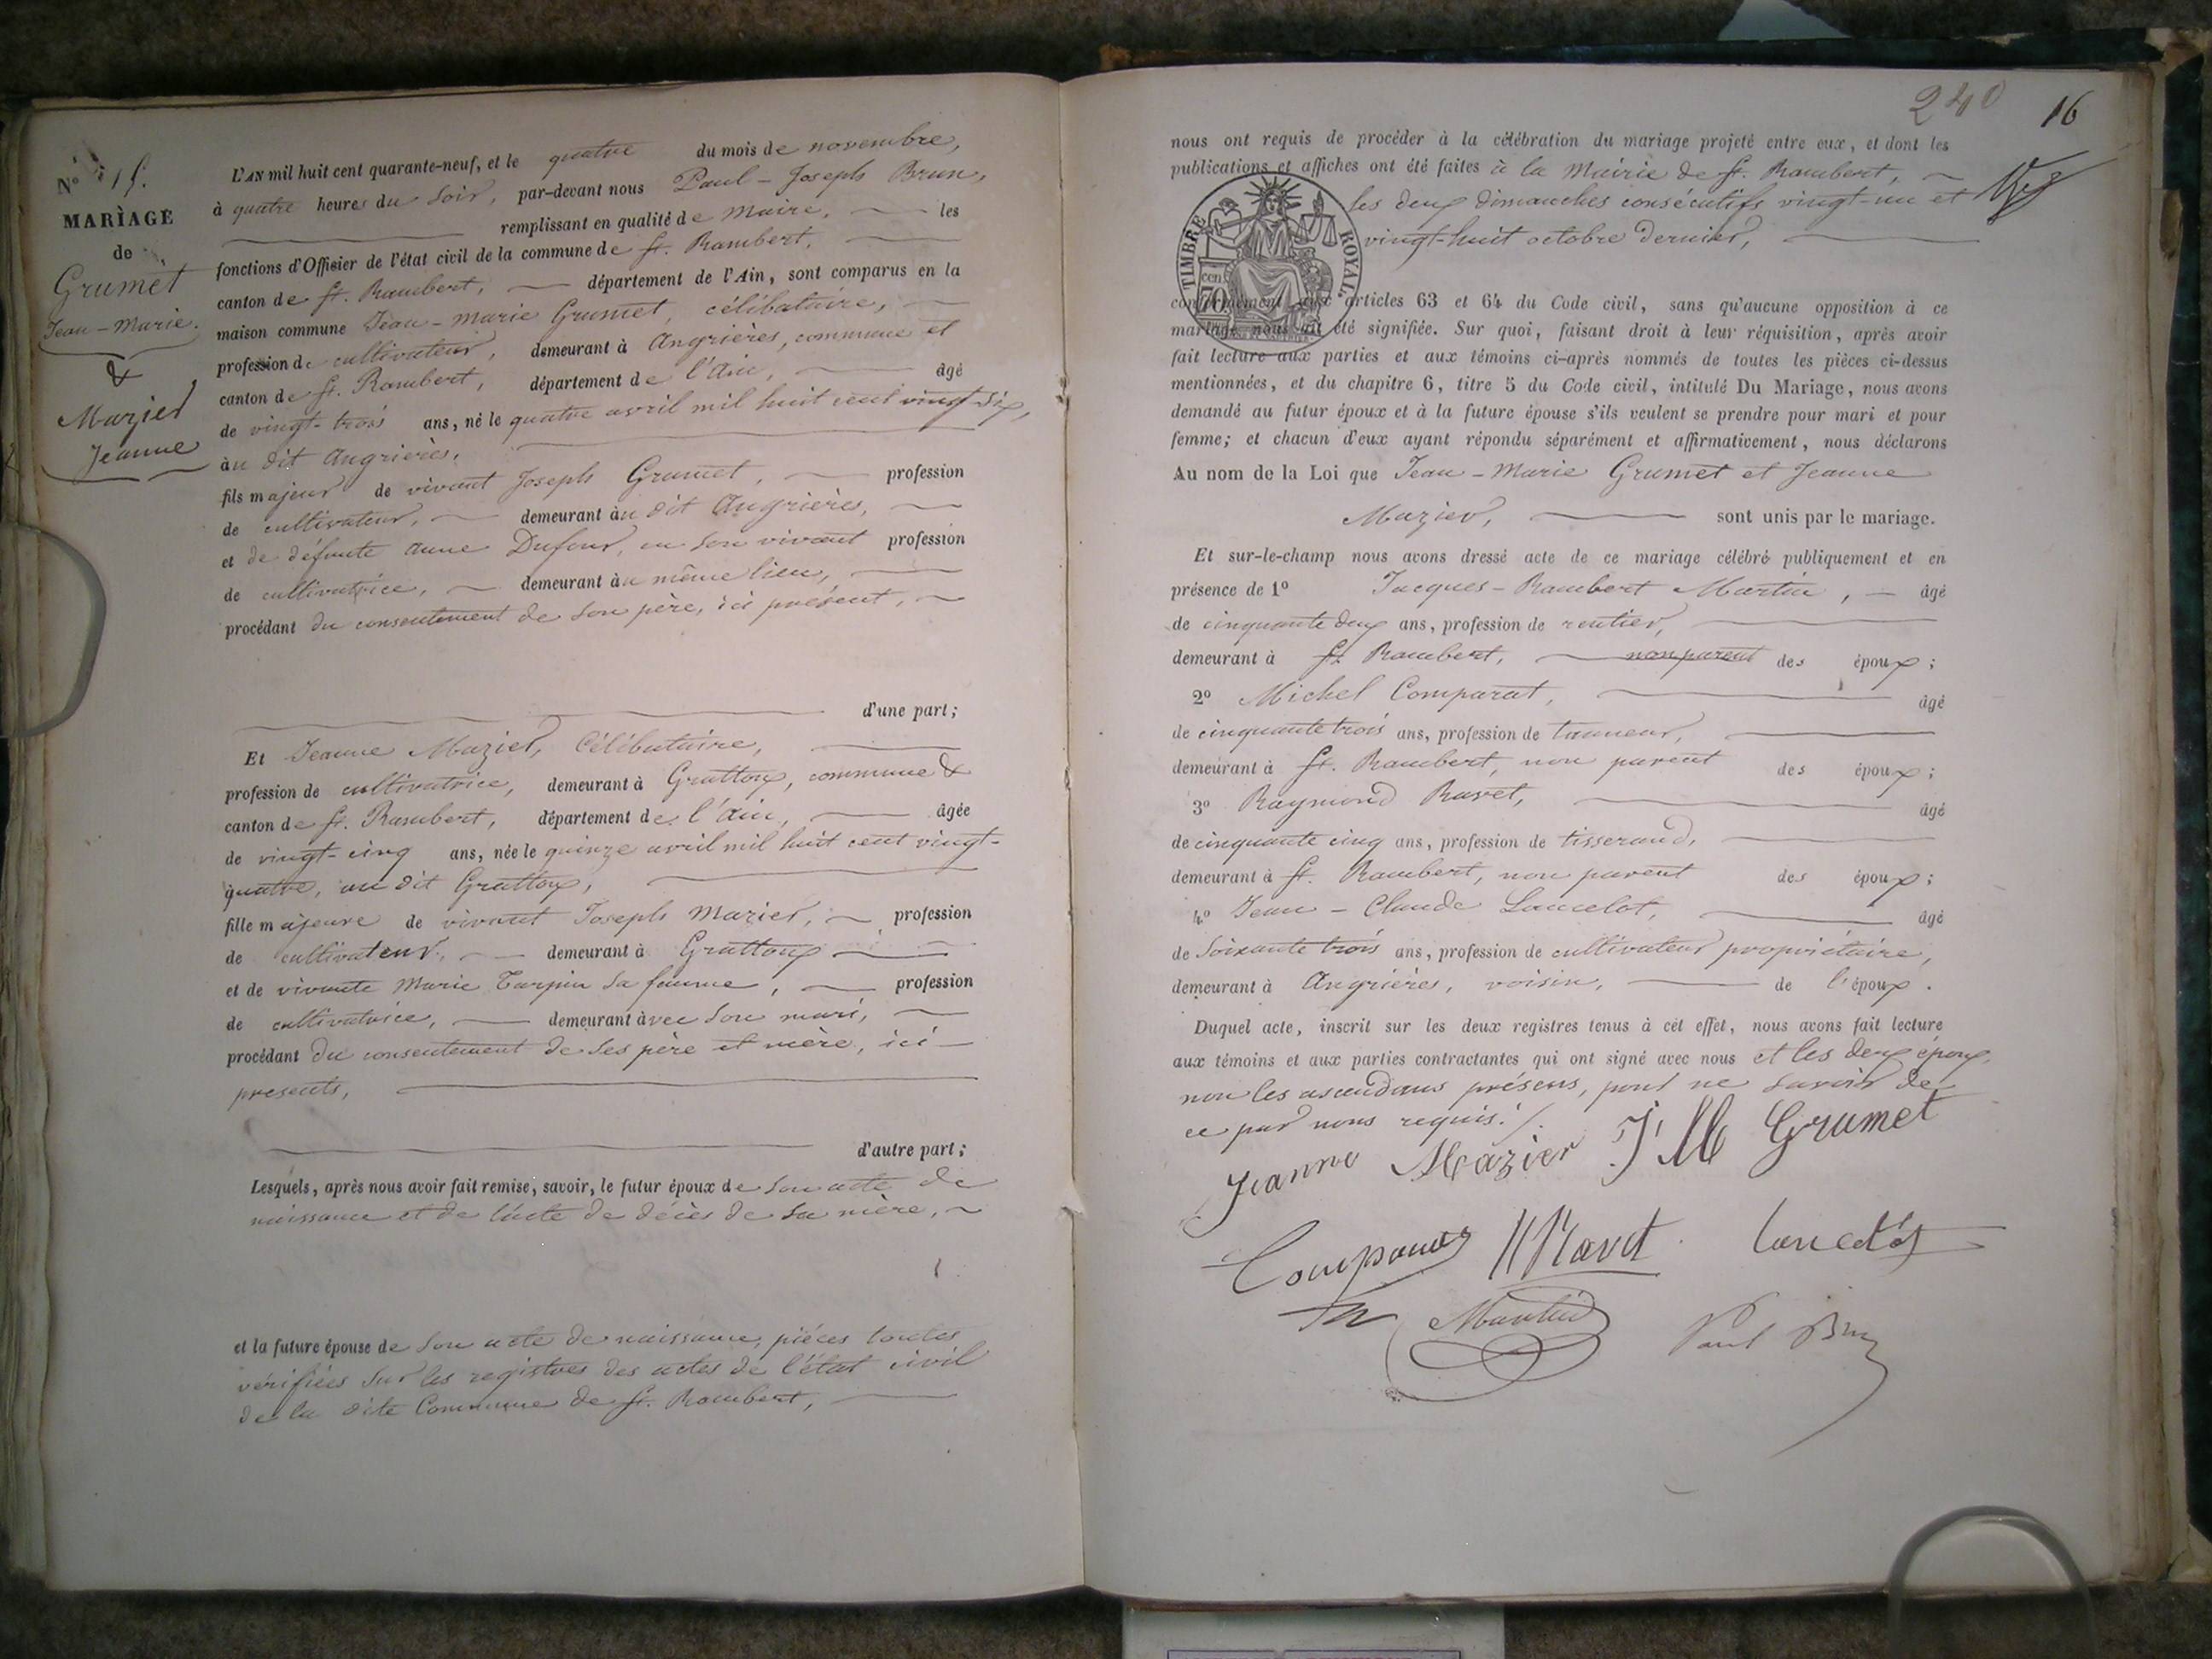 N° 15.
MARIAGE
de
Grumet
Jean-Marie.
&
Mazier
Jeanne
L'AN mil huit cent quarante-neuf, et le quatre du mois de novembre,
à quatre heures du soir, par-devant nous Paul-Joseph Brun,
remplissant en qualité de Maire, les
fonctions d'Officier de l'état civil de la commune de St. Rambert,
canton de St. Rambert, département de l'Ain, sont comparus en la
maison commune Jean-Marie Grumet, célibataire,
profession de cultivateur, demeurant à Angrières, commune et
canton de St. Rambert, département de l'Ain, âgé
de vingt-trois ans, né le quatre avril mil huit cent vingt-six,
au dit Angrières,
fils majeur de vivant Joseph Grumet, profession
de cultivateur, demeurant au dit Angrières,
et de défunte Anne Dufour, en son vivant profession
de cultivatrice, demeurant au même lieu,
procédant du consentement de son père, ici présent,
d'une part;
Et Jeanne Mazier, Célibataire,
profession de cultivatrice, demeurant à Grattoux, commune &
canton de St. Rambert, département de l'Ain, âgée
de vingt-cinq ans, née le quinze avril mil huit cent vingt-
quatre, au dit Grattoux,
fille majeure de vivant Joseph Mazier, profession
de cultivateur, demeurant à Grattoux
et de vivante Marie Tarpin sa femme, profession
de cultivatrice, demeurant avec son mari,
procédant du consentement de ses père et mère, ici
presents,
d'autre part;
Lesquels, après nous avoir fait remise, savoir, le futur époux de son acte de
naissance et de l'acte de décès de sa mère,
et la future épouse de son acte de naissance, pièces toutes
vérifiées sur les registres des actes de l'état civil
de la dite Commune de St. Rambert,
240
16
nous ont requis de procéder à la célébration du mariage projeté entre eux, et dont les
publications et affiches ont été faites à la Mairie de St. Rambert,
les deux dimanches consécutifs vingt-un et
vingt-huit octobre dernier,
TIMBRE ROYAL
70 cen
conformément aux articles 63 et 64 du Code civil, sans qu'aucune opposition à ce
mariage nous ait été signifiée. Sur quoi, faisant droit à leur réquisition, après avoir
fait lecture aux parties et aux témoins ci-après nommés de toutes les pièces ci-dessus
mentionnées, et du chapitre 6, titre 5 du Code civil, intitulé Du Mariage, nous avons
demandé au futur époux et à la future épouse s'ils veulent se prendre pour mari et pour
femme; et chacun d'eux ayant répondu séparément et affirmativement, nous déclarons
Au nom de la Loi que Jean-Marie Grumet et Jeanne
Mazier, sont unis par le mariage.
Et sur-le-champ nous avons dressé acte de ce mariage célébré publiquement et en
présence de 1° Jacques-Rambert Martin, âgé
de cinquante deux ans, profession de rentier,
demeurant à St. Rambert, non parent des époux;
2° Michel Comparat, âgé
de cinquante trois ans, profession de tanneur,
demeurant à St. Rambert, non parent des époux;
3° Raymond Ravet, âgé
de cinquante cinq ans, profession de tisserand,
demeurant à St. Rambert, non parent des époux;
4° Jean-Claude Lancelot, âgé
de soixante trois ans, profession de cultivateur propriétaire,
demeurant à Angrières, voisin, de l'époux.
Duquel acte, inscrit sur les deux registres tenus à cet effet, nous avons fait lecture
aux témoins et aux parties contractantes qui ont signé avec nous et les deux époux,
non les ascendans présens, pour ne savoir de
ce par nous requis./.
Jeanne Mazier J M Grumet
Ravet Lancelot
Martin Paul Brun